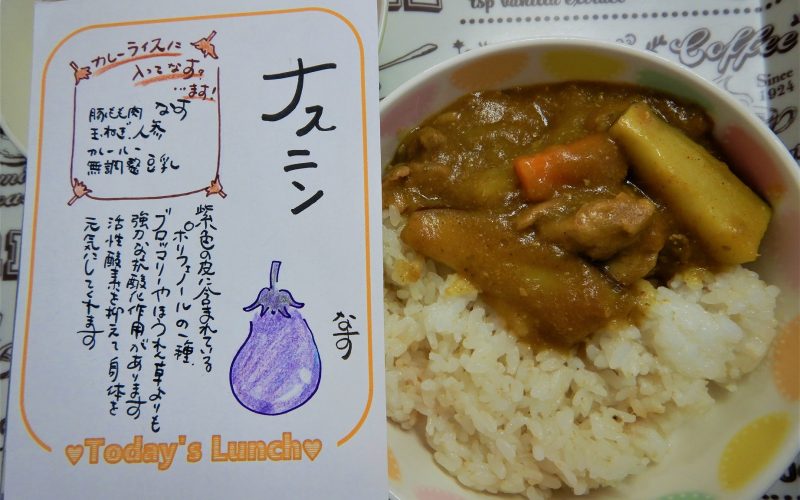 カレーライスに
入ってなす。
…ます!
豚もも肉 なす
玉ねぎ、人参
カレールー
無調整豆乳
ナスニン
紫色の皮に含まれている
ポリフェノールの一種、
ブロッコリーやほうれん草よりも
強力な抗酸化作用があります
活性酸素を抑えて身体を
元気にしてくれます
なす
Today's Lunch
tsp vanilla extract
Coffee
Since
1924